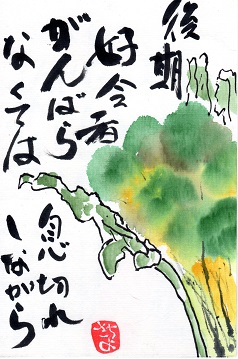 後期
好令者
がんばら
なくては
息切れ
しながら